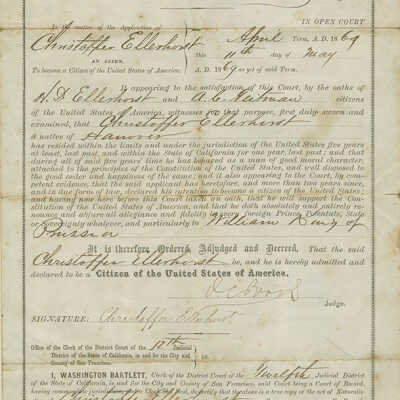 IN OPEN COURT
In the matter of the Application of
Christoffer Ellerhorst
AN ALIEN,
To become a Citizen of the United States of America.
April Term, A. D. 1869
this 11th day of May
A. D. 1869 as yet of said Term.
It appearing to the satisfaction of this Court, by the oaths of
H. D. Ellerhorst and A. C. citizens
of the United States of America, witnesses for that purpose, first duly sworn and
examined, that Christoffer Ellerhorst
a native of Hanover
has resided within the limits and under the jurisdiction of the United States five years
at least, last past, and within the State of California for one year, last past; and that
during all of said five years' time he has behaved as a man of good moral character,
attached to the principles of the Constitution of the United States, and well disposed to
the good order and happiness of the same; and it also appearing to the Court, by com-
petent evidence, that the said applicant has heretofore, and more than two years since,
and in due form of law, declared his intention to become a citizen of the United States;
and having now here before this Court taken an oath, that he will support the Con-
stitution of the United States of America, and that he doth absolutely and entirely re-
nounce and abjure all allegiance and fidelity to every foreign Prince, Potentate, State
or Sovereignty whatever, and particularly to William King of
Prussia
It is therefore Ordered, Adjudged and Decreed, That the said
Christoffer Ellerhorst be, and he is hereby admitted and
declared to be a Citizen of the United States of America.
Judge.
SIGNATURE: Christoffer Ellerhorst
Office of the Clerk of the District Court of the 12th Judicial
District of the State of California, in and for the City and
County of San Francisco. ss.
I, WASHINGTON BARTLETT, Clerk of the District Court of the Twelfth Judicial District
of the State of California, in and for the City and County of San Francisco, said Court being a Court of Record,
having common law jurisdiction, and a Clerk and Seal, do certify that the above is a true copy of the act of Naturaliz-